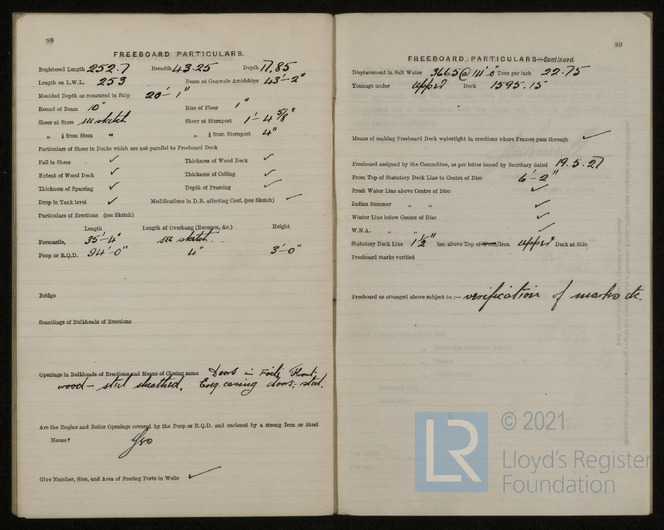 88
FREEBOARD PARTICULARS.
Registered Length 252.7 Breadth 43.25 Depth 17.85
Length on L.W.L. 253 Beam at Gunwale Amidships 43'-2"
Moulded Depth as measured in Ship 20'-1"
Round of Beam 10" Rise of Floor 1"
Sheer at Stem see sketch Sheer at Sternpost 1'-4 5/8"
" ⅛ from Stem " " ⅛ from Sternpost 4"
Particulars of Sheer in Decks which are not parallel to Freeboard Deck
Fall in Sheer ✓ Thickness of Wood Deck ✓
Extent of Wood Deck ✓ Thickness of Ceiling ✓
Thickness of Sparring ✓ Depth of Framing ✓
Drop in Tank level ✓ Modifications in D.B. affecting Coef. (see Sketch) ✓
Particulars of Erections (see Sketch)
Length Length of Overhang (Recesses, &c.) Height
Forecastle, 35'-4" see sketch
Poop or R.Q.D. 94'-0" 4" 3'-0"
Bridge
Scantlings of Bulkheads of Erections
Openings in Bulkheads of Erections and Means of Closing same Doors in Fo'cle Front
wood - steel sheathed. Eng. casing doors - steel.
Are the Engine and Boiler Openings covered by the Poop or R.Q.D. and enclosed by a strong Iron or Steel
House? Yes
Give Number, Size, and Area of Freeing Ports in Wells ✓
89
FREEBOARD PARTICULARS—Continued.
Displacement in Salt Water 3665 @ 14'.0" Tons per inch 22.75
Tonnage under Upper Deck 1595.15
Means of making Freeboard Deck watertight in erections where Frames pass through ✓
Freeboard assigned by the Committee, as per letter issued by Secretary dated 19.5.27
From Top of Statutory Deck Line to Centre of Disc 6'-2"
Fresh Water Line above Centre of Disc ✓
Indian Summer " " ✓
Winter Line below Centre of Disc ✓
W.N.A. " " ✓
Statutory Deck Line 1½" ins. above Top of Wood/Iron Upper Deck at Side
Freeboard marks verified
Freeboard as arranged above subject to :— verification of marks etc.
LR © 2021
Lloyd's Register
Foundation